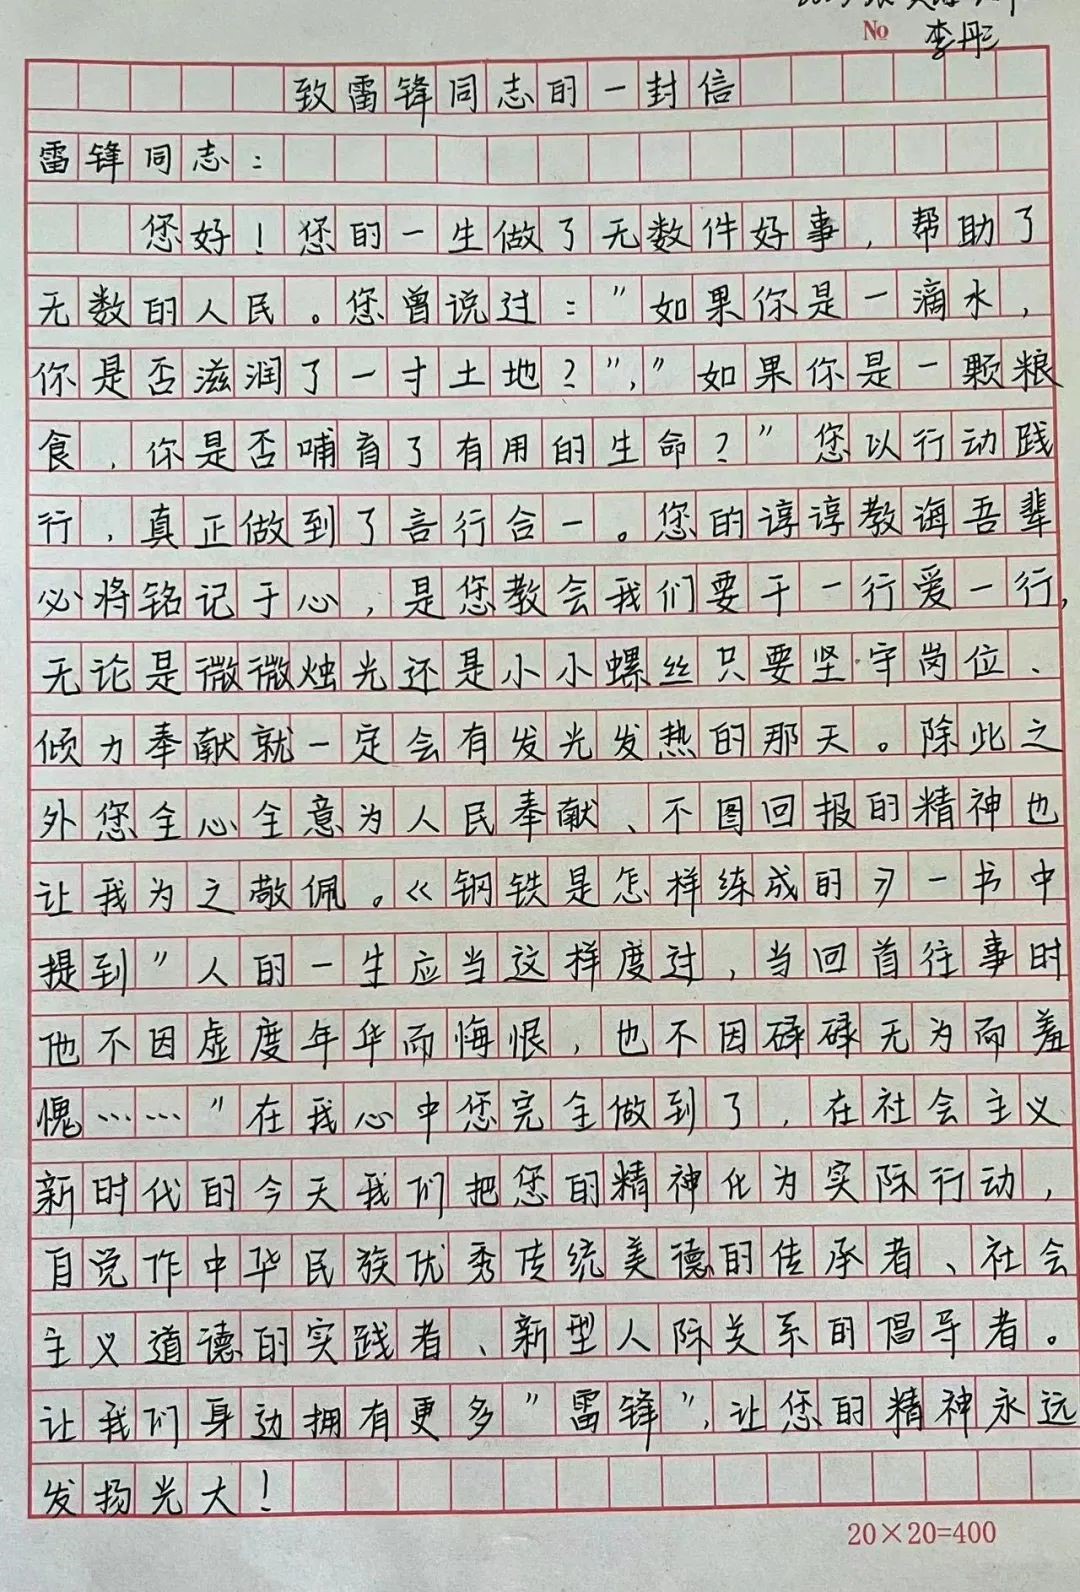 № 李彤
致雷锋同志的一封信
雷锋同志：
您好！您的一生做了无数件好事，帮助了
无数的人民。您曾说过："如果你是一滴水，
你是否滋润了一寸土地？"，"如果你是一颗粮
食，你是否哺育了有用的生命？"您以行动践
行，真正做到了言行合一。您的谆谆教诲吾辈
必将铭记于心，是您教会我们要干一行爱一行，
无论是微微烛光还是小小螺丝只要坚守岗位、
倾力奉献就一定会有发光发热的那天。除此之
外您全心全意为人民奉献、不图回报的精神也
让我为之敬佩。《钢铁是怎样练成的》一书中
提到"人的一生应当这样度过，当回首往事时
他不因虚度年华而悔恨，也不因碌碌无为而羞
愧……"在我心中您完全做到了，在社会主义
新时代的今天我们把您的精神化为实际行动，
自觉作中华民族优秀传统美德的传承者、社会
主义道德的实践者、新型人际关系的倡导者。
让我们身边拥有更多"雷锋"，让您的精神永远
发扬光大！
20×20=400